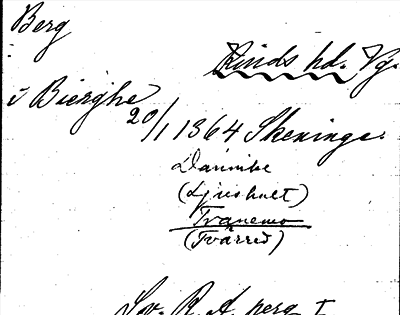 Berg
Kinds hd. Vg.
i Bierghe
20/1 1364 Skeninge.
Dannike
(Ljushult)
Tranemo
(Tvärred)
Sv. R. A. perg